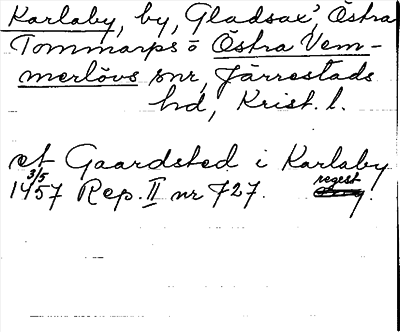 Karlaby, by, Gladsax, Östra
Tommarps o Östra Vem-
merlövs snr, Järrestads
hd, Krist. l.
et Gaardsted i Karlaby
3/5 regest
1457 Rep. II nr 727.